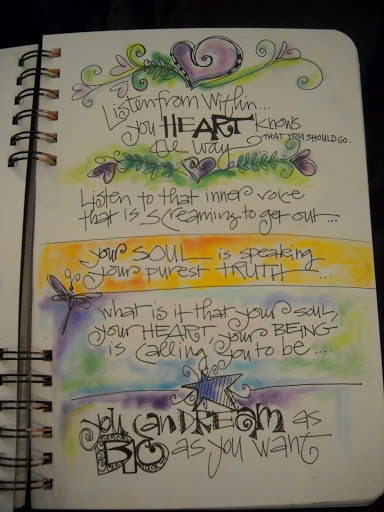 Listen from within...
you HEART knows
the way THAT YOU SHOULD GO.
Listen to that inner voice
that is screaming to get out...
your SOUL is speaking
your purest TRUTH ...
what is it that your soul,
your HEART, your BEING
is calling you to be....
you can DREAM as
BIG as you want